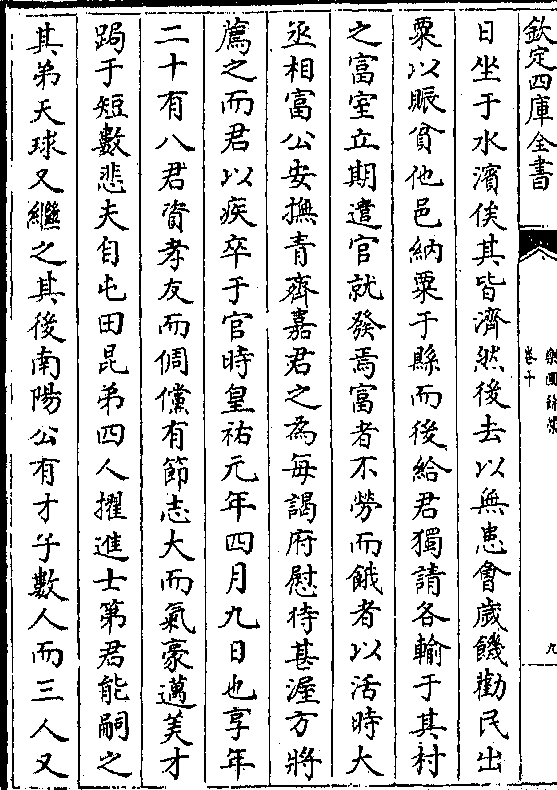 欽定四庫全書
樂圃餘藁
卷十
九
日坐于水濱俟其皆濟然後去以無患會歲饑勸民出
粟以賑貧他邑納粟于縣而後給君獨請各輸于其村
之富室立期遣官就發焉富者不勞而餓者以活時大
丞相富公安撫青齊嘉君之為每謁府慰待甚渥方將
薦之而君以疾卒于官時皇祐元年四月九日也享年
二十有八君資孝友而倜儻有節志大而氣豪邁美才
跼于短數悲夫自屯田昆弟四人擢進士第君能嗣之
其弟天球又繼之其後南陽公有才子數人而三人又